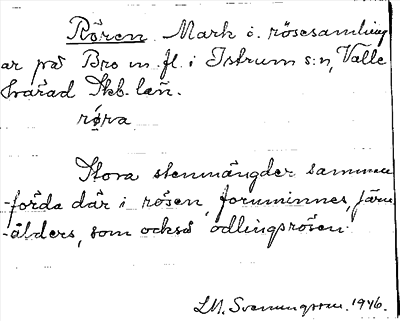 Rören. Mark o. rösesamling
ar på Bro m. fl. i Istrum s:n, Valle
härad Skb. län.
rø̀ra
Stora stenmängder samman
-förda där i rösen, fornminnes, järn
-ålders, som också odlingsrösen.
L.M. Svenungsson. 1946.